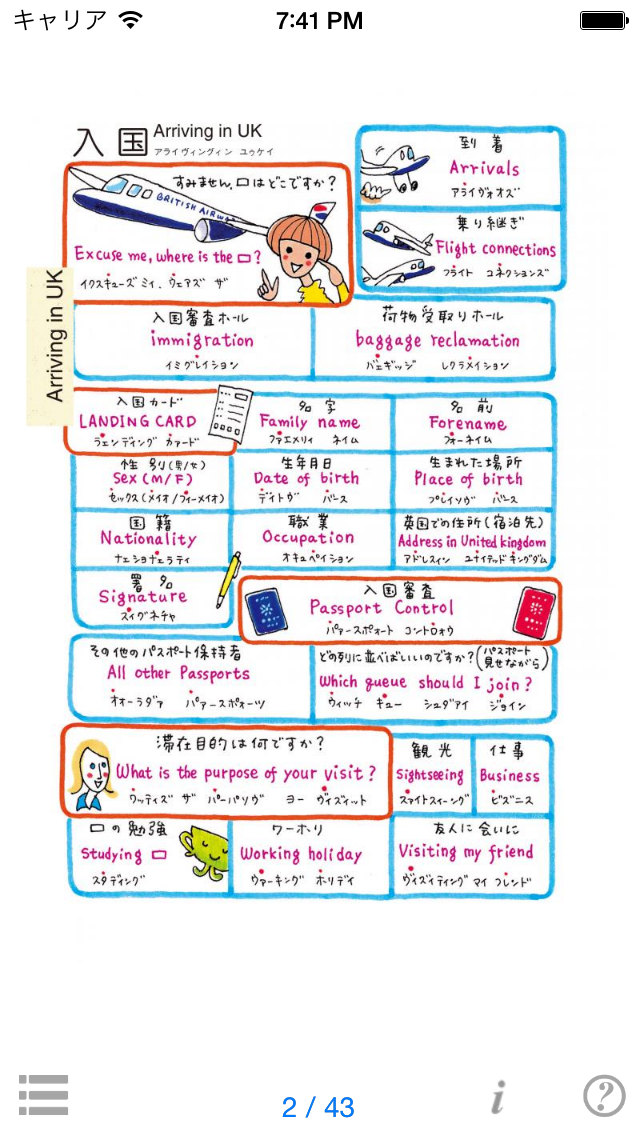 キャリア 7:41 PM
入国 Arriving in UK
アライヴィングィン ユゥケイ
すみません、口はどこですか?
BRITISH AIRW
Excuse me, where is the 口?
イクスキューズ ミィ、ウェアズ ザ
到着
Arrivals
アライヴォオズ
乗り継ぎ
Flight connections
フライト コネクションズ
Arriving in UK
入国審査ホール
immigration
イミグレイション
荷物受取りホール
baggage reclamation
バェギッジ レクラメイション
入国カード
LANDING CARD
ラェンディング カァード
名字
Family name
ファエメリィ ネイム
名前
Forename
フォーネイム
性別(男/女)
Sex (M/F)
セックス(メイオ/フィーメイオ)
生年月日
Date of birth
デイトヴ バース
生まれた場所
Place of birth
プレイソヴ バース
国籍
Nationality
ナェショナェラティ
職業
Occupation
オキュペイション
英国での住所(宿泊先)
Address in United kingdom
アドレスィン ユナイテッドキングダム
署名
Signature
スィグネチャ
入国審査
Passport Control
パァースポォート コントロォウ
その他のパスポート保持者
All other Passports
オオーラダァ パァースポォーツ
どの列に並べばいいのですか?(パスポート見せながら)
Which queue should I join?
ウィッチ キュー シュダアイ ジョイン
滞在目的は何ですか?
What is the purpose of your visit?
ワッティズ ザ パーパソヴ ヨー ヴィズィット
観光
Sightseeing
スァイトスイーング
仕事
Business
ビズニス
口の勉強
Studying 口
スタディング
ワーホリ
Working holiday
ウァーキング ホリデイ
友人に会いに
Visiting my friend
ヴィズィティング マイ フレンド
2 / 43
i
?